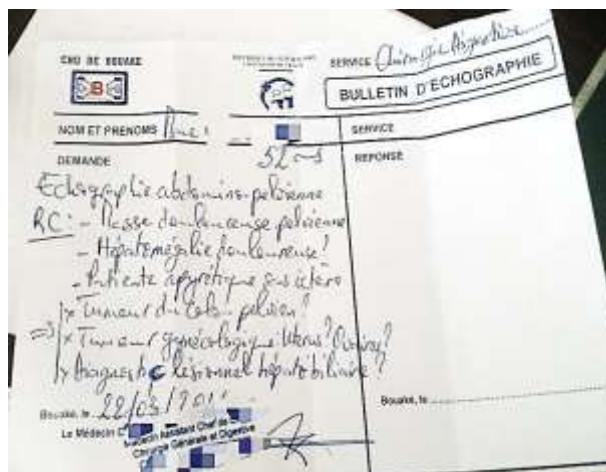 CHU DE BOUAKE
SERVICE Chirurgie Digestive
BULLETIN D'ECHOGRAPHIE
NOM ET PRENOMS Mme
SERVICE
52 ans
DEMANDE
REPONSE
Echographie abdomino-pelvienne
RC: - Masse douloureuse pelvienne
- Hépatomégalie douloureuse!
- Patiente apyrétique sans ictère
x Tumeur du colon pelvien?
=> x Tumeur gynécologique: Uterus? Ovaires?
x Diagnostic lésionnel hépatobiliaire?
Bouaké, le 22/03/
Bouaké, le
Le Médecin
Médecin Assistant Chef de
Chirurgie Générale et Digestive